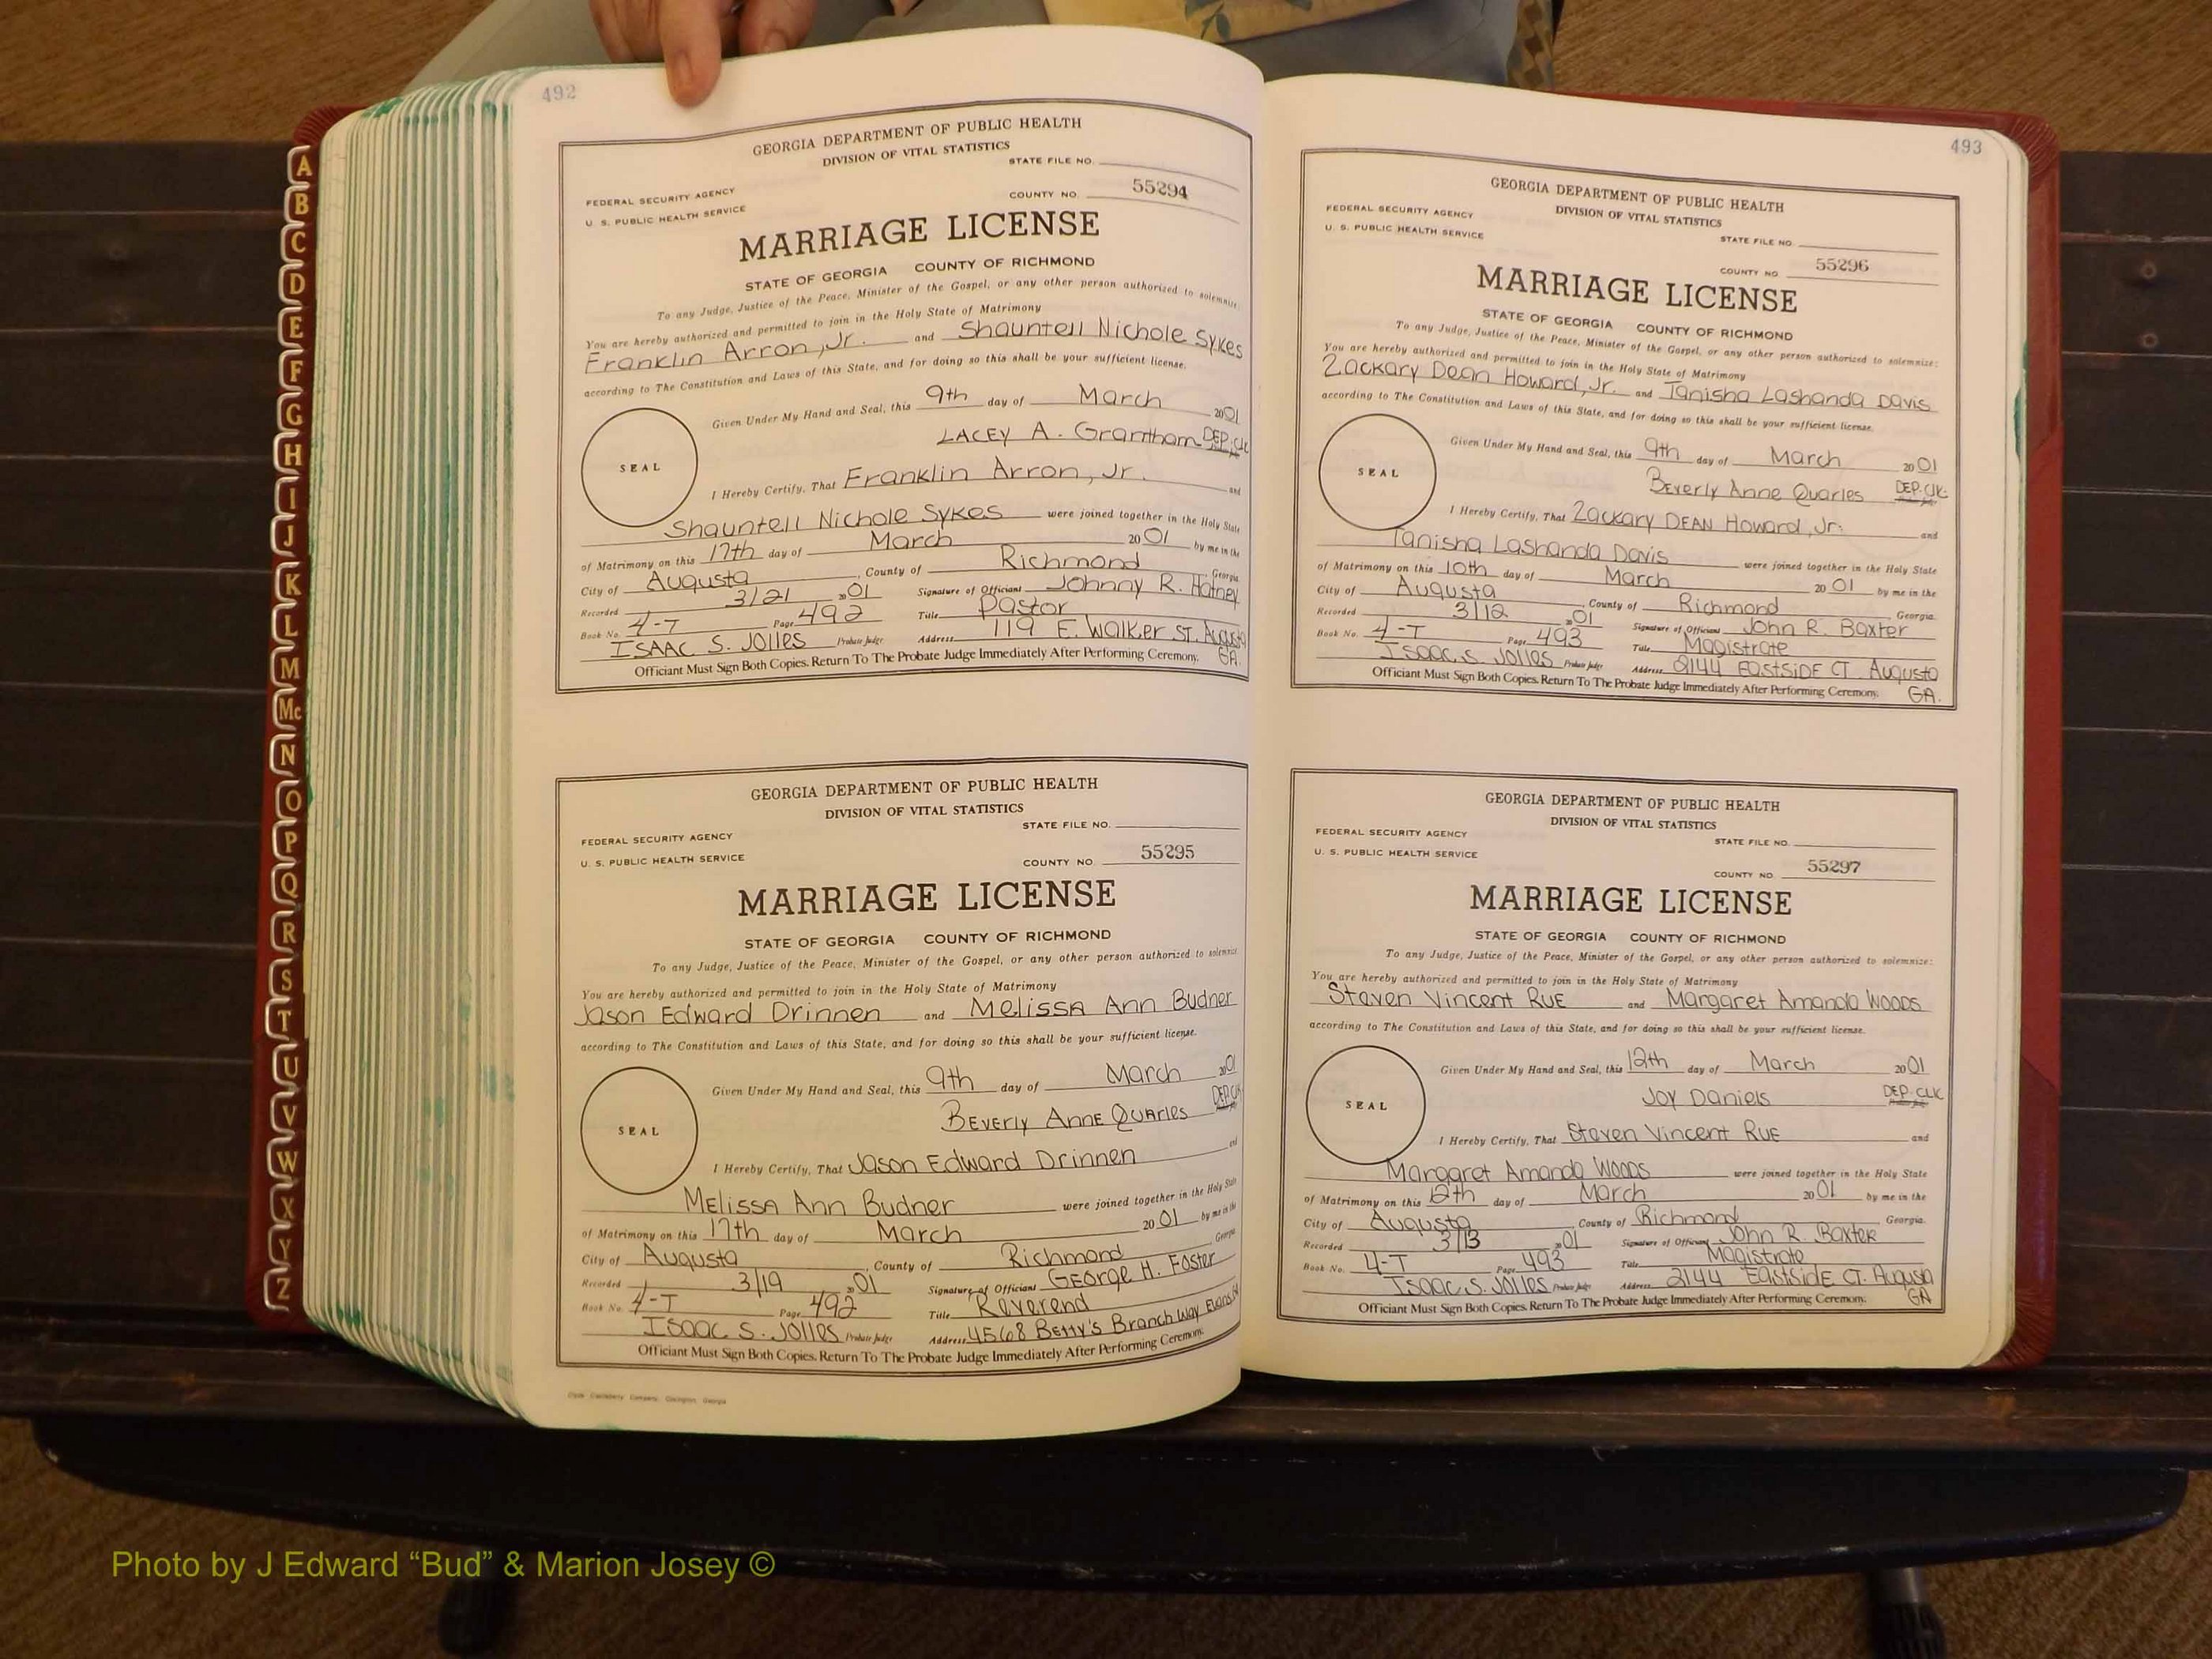 492
GEORGIA DEPARTMENT OF PUBLIC HEALTH
DIVISION OF VITAL STATISTICS
STATE FILE NO.
FEDERAL SECURITY AGENCY
COUNTY NO. 55294
U. S. PUBLIC HEALTH SERVICE
MARRIAGE LICENSE
STATE OF GEORGIA COUNTY OF RICHMOND
To any Judge, Justice of the Peace, Minister of the Gospel, or any other person authorized to solemnize:
You are hereby authorized and permitted to join in the Holy State of Matrimony
Franklin Arron, Jr. and Shauntell Nichole Sykes
according to The Constitution and Laws of this State, and for doing so this shall be your sufficient license.
Given Under My Hand and Seal, this 9th day of March 2001
LACEY A. Grantham DEP. Clk
SEAL
I Hereby Certify, That Franklin Arron, Jr. and
Shauntell Nichole Sykes were joined together in the Holy State
of Matrimony on this 17th day of March 2001 by me in the
City of Augusta, County of Richmond Georgia
Recorded 3/21 2001 Signature of Officiant Johnny R. Hatney
Book No. 4-T Page 492 Title Pastor
ISAAC S. JOLLES Probate Judge Address 119 E. Walker ST. Augusta
GA.
Officiant Must Sign Both Copies. Return To The Probate Judge Immediately After Performing Ceremony.
GEORGIA DEPARTMENT OF PUBLIC HEALTH
DIVISION OF VITAL STATISTICS
STATE FILE NO.
FEDERAL SECURITY AGENCY
U. S. PUBLIC HEALTH SERVICE
COUNTY NO. 55295
MARRIAGE LICENSE
STATE OF GEORGIA COUNTY OF RICHMOND
To any Judge, Justice of the Peace, Minister of the Gospel, or any other person authorized to solemnize
You are hereby authorized and permitted to join in the Holy State of Matrimony
Jason Edward Drinnen and Melissa Ann Budner
according to The Constitution and Laws of this State, and for doing so this shall be your sufficient license.
Given Under My Hand and Seal, this 9th day of March 2001
Beverly Anne Quarles DEP. Clk
SEAL
I Hereby Certify, That Jason Edward Drinnen and
Melissa Ann Budner were joined together in the Holy State
of Matrimony on this 17th day of March 2001 by me in the
City of Augusta, County of Richmond Georgia
Recorded 3/19 2001 Signature of Officiant George H. Foster
Book No. 4-T Page 492 Title Reverend
ISAAC S. JOLLES Probate Judge Address 4568 Betty's Branch Way Evans,
Officiant Must Sign Both Copies. Return To The Probate Judge Immediately After Performing Ceremony.
493
GEORGIA DEPARTMENT OF PUBLIC HEALTH
DIVISION OF VITAL STATISTICS
FEDERAL SECURITY AGENCY
U. S. PUBLIC HEALTH SERVICE
STATE FILE NO.
COUNTY NO. 55296
MARRIAGE LICENSE
STATE OF GEORGIA COUNTY OF RICHMOND
To any Judge, Justice of the Peace, Minister of the Gospel, or any other person authorized to solemnize:
You are hereby authorized and permitted to join in the Holy State of Matrimony
Zackary Dean Howard, Jr. and Tanisha Lashanda Davis
according to The Constitution and Laws of this State, and for doing so this shall be your sufficient license.
Given Under My Hand and Seal, this 9th day of March 2001
Beverly Anne Quarles DEP. Clk.
SEAL
I Hereby Certify, That Zackary DEAN Howard, Jr. and
Tanisha Lashanda Davis were joined together in the Holy State
of Matrimony on this 10th day of March 2001 by me in the
City of Augusta, County of Richmond Georgia.
Recorded 3/12 2001 Signature of Officiant John R. Baxter
Book No. 4-T Page 493 Title Magistrate
Isaac S. Jolles Probate Judge Address 2144 EASTSIDE CT. Augusta
GA.
Officiant Must Sign Both Copies. Return To The Probate Judge Immediately After Performing Ceremony.
GEORGIA DEPARTMENT OF PUBLIC HEALTH
DIVISION OF VITAL STATISTICS
FEDERAL SECURITY AGENCY
STATE FILE NO.
U. S. PUBLIC HEALTH SERVICE
COUNTY NO. 55297
MARRIAGE LICENSE
STATE OF GEORGIA COUNTY OF RICHMOND
To any Judge, Justice of the Peace, Minister of the Gospel, or any other person authorized to solemnize:
You are hereby authorized and permitted to join in the Holy State of Matrimony
Steven Vincent RUE and Margaret Amanda Woods
according to The Constitution and Laws of this State, and for doing so this shall be your sufficient license.
Given Under My Hand and Seal, this 12th day of March 2001
Joy Daniels DEP. CLK
SEAL
I Hereby Certify, That Steven Vincent RUE and
Margaret Amanda Woods were joined together in the Holy State
of Matrimony on this 12th day of March 2001 by me in the
City of Augusta, County of Richmond Georgia.
Recorded 3/13 2001 Signature of Officiant John R. Baxter
Book No. 4-T Page 493 Title Magistrate
Isaac S. Jolles Probate Judge Address 2144 Eastside CT. Augusta
GA
Officiant Must Sign Both Copies. Return To The Probate Judge Immediately After Performing Ceremony.
A
B
C
D
E
F
G
H
I
J
K
L
M
Mc
N
O
P
Q
R
S
T
U
V
W
X
Y
Z
Photo by J Edward “Bud” & Marion Josey ©